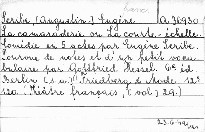 Scribe (Augustin) Eugène A 36930
La camaraderie ou La courte-échelle.
Comédie en 5 actes par Eugène Scribe.
de notes et d'un petit vocabulaire par Gottfried Hessel. 6e éd.
Berlin (s. a.) Friedberg & Mode. 12º
120 p. Théâtre français, (vol) 29.)
23.6.49